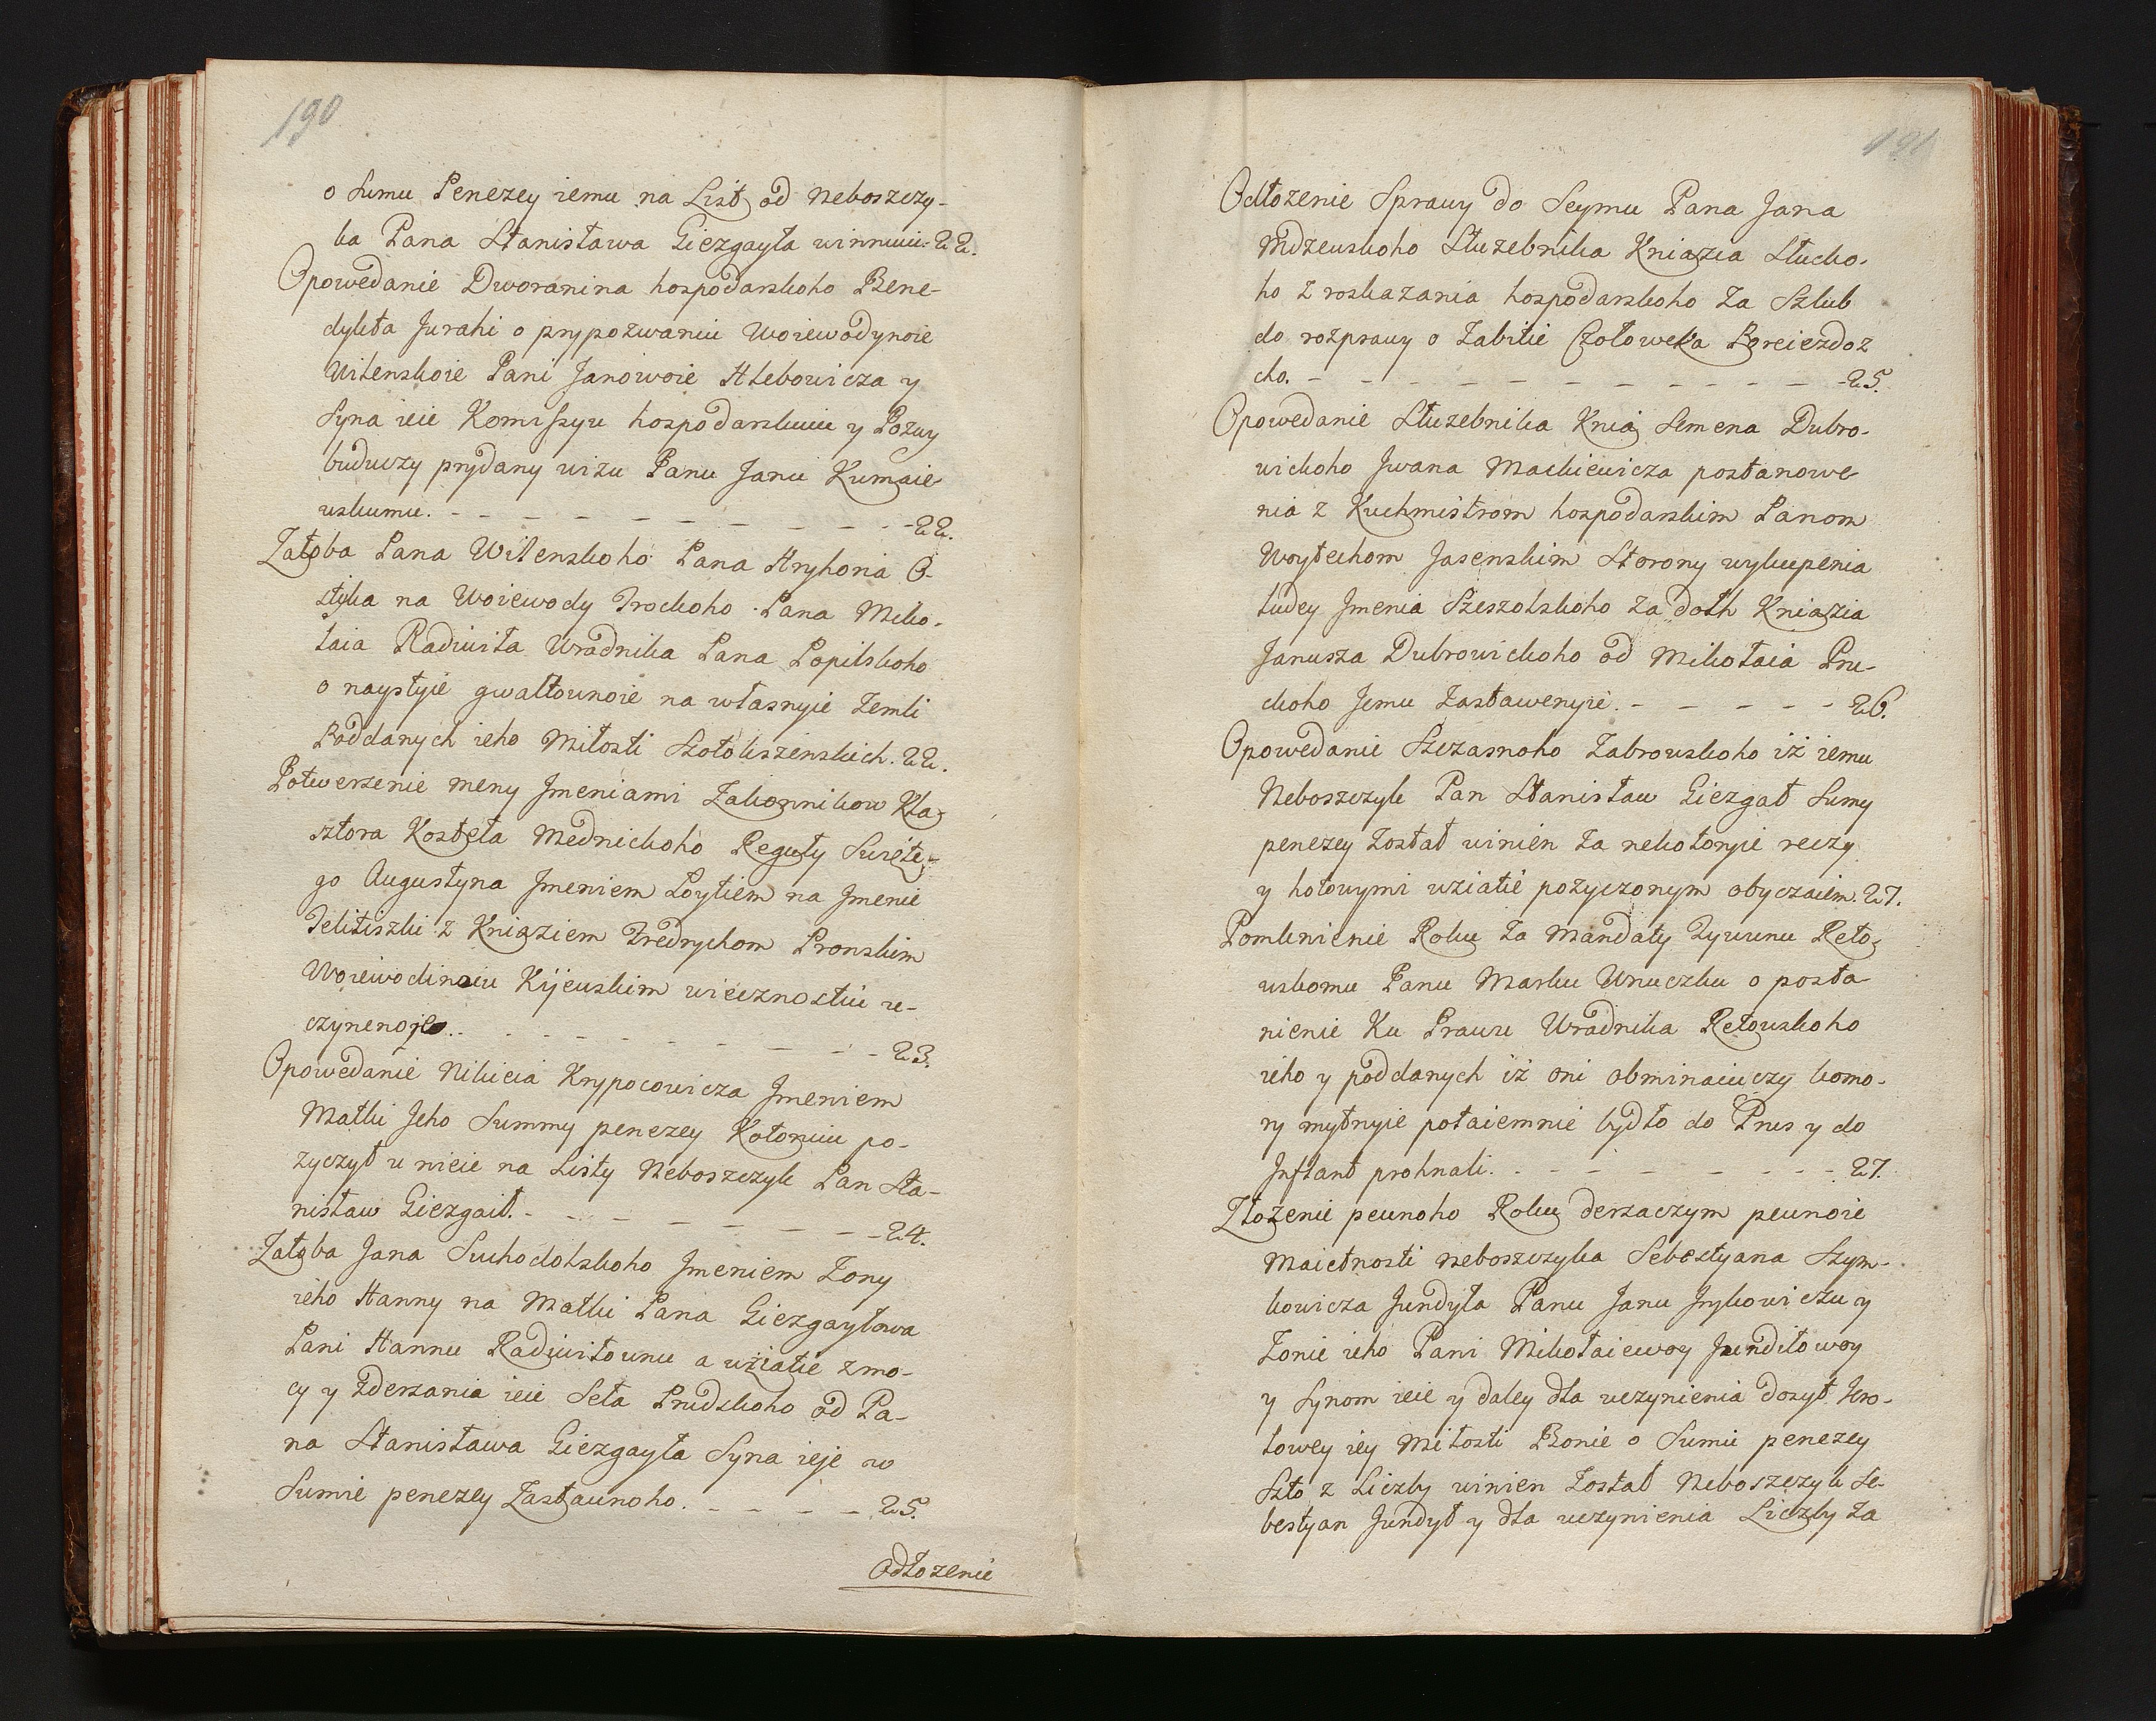 190
o Sumu Penezey iemu na List od Neboszczy-
ka Pana Stanisława Giezgayła winnuiu. 22.
Opowedanie Dworanina hospodarskoho Bene-
dykta Jurahi o prypozwaniu Woiewodynoie
Witenskoie Pani Janowoie Hlebowicza y
Syna ieie Komissyu hospodarskuiu y Pozwy
buduczy prydany wizu Panu Janu Kumaie
wskumu. - - - - - - - - - - 22.
Załoba Pana Wilenskoho Pana Hryhoria O-
styka na Woiewody Trockoho Pana Miko-
łaia Radiwiła Wradnika Pana Popilskoho
o naystyie gwałtownoie na własnyie Zemli
Poddanych ieho Miłosti Szołokszenskich. 22.
Potwerzenie meny Jmeniami Zakonnikow Kla-
sztora Kosteła Mednickoho Reguły Swięte-
go Augustyna Jmeniem Poytiem na Jmenie
Telitiszki z Kniaziem Fredrychom Pronskim
Woiewodinoiu Kijewskim wiecznostiu u-
czynenoje. - - - - - - - - - 23.
Opowedanie Nikicia Krypocowicza Jmeniem
Matki Jeho Summy penezey Kotoruiu po-
zyczył u nieie na Listy Neboszczyk Pan Sta-
nisław Giezgaił. - - - - - - - - 24.
Załoba Jana Suchodolskoho Jmeniem Zony
ieho Hanny na Matki Pana Giezgayłowa
Pani Hannu Radiwiłownu a uziatie z mo-
cy y zderzania ieie Seła Prudskoho od Pa-
na Stanisława Giezgayła Syna ieje w
Sumie penezey Zastawnoho. - - - - 25.
Odłozenie
191
Odłozenie Sprawy do Seymu Pana Jana
Mdzewskoho Słuzebnika Kniazia Słucko-
ho z roskazania hospodarskoho Za Szlub
do rozprawy o Zabitie Człoweka Poreiezdoz
cko. - - - - - - - - - - - 25.
Opowedanie Słuzebnika Knia Semena Dubro-
wickoho Jwana Mackiewicza postanowe
nia z Kuchmistrom hospodarskim Panom
Woytechom Jasenskim Storony wykupenia
ludey Jmenia Szeszolskoho Za dolh Kniazia
Janusza Dubrowickoho od Mikołaia Pru-
ckoho Jemu Zastawenyie. - - - - - 26.
Opowedanie Szczasnoho Zabrowskoho iż iemu
Neboszczyk Pan Stanisław Giezgał Sumy
penezey Został winien Za nekotoryie reczy
y hotowymi uziatie pozyczonym obyczaiem. 27.
Pomknienie Roku Za Mandaty Tywunu Reto-
wskomu Panu Marku Wnuczku o posta
nienie Ku Prawu Wradnika Retowskoho
ieho y poddanych iż oni obminaiuczy komo-
ry mytnyie potaiemnie bydło do Prus y do
Jnflant prohnali. - - - - - - - - 27.
Złożenie pewnoho Roku derzaczym pewnoie
Maietnosti neboszczyka Sebestyana Szym-
kowicza Jundyła Panu Janu Jrykowiczu y
Zonie ieho Pani Mikołaiewoy Jundiłowoy
y Synom ieie y daley dla uczynienia dosyt Kro-
lowey iey Miłosti Bonie o Sumie penezey
Szto z Liczby winien Został Neboszczyk Se-
bestyan Jundył y dla uczynienia Liczby Za